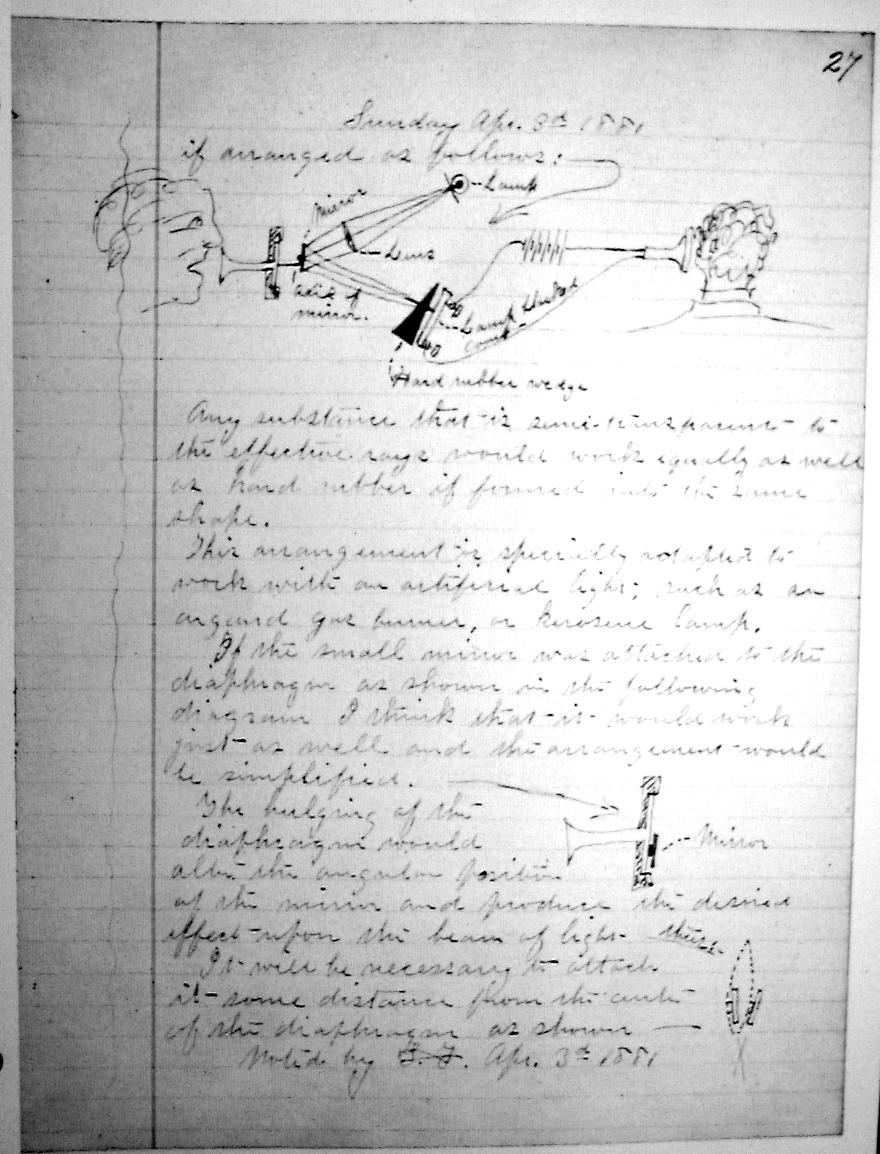 27
Sunday Apr. 3d 1881
if arranged as follows:
Lamp
Mirror
Lens
axis of
mirror.
Lamp black
Hard rubber wedge
Any substance that is semi-transparent to
the effective rays would work equally as well
as hard rubber if formed into the same
shape.
This arrangement is specially adapted to
work with an artificial light; such as an
argand gas burner, or kerosene lamp.
If the small mirror was attached to the
diaphragm as shown in the following
diagram I think that it would work
just as well and the arrangement would
be simplified.
The bulging of the
diaphragm would
Mirror
alter the angular position
of the mirror and produce the desired
effect upon the beam of light thus:-
It will be necessary to attach
it some distance from the center
of the diaphragm as shown
Noted by Apr. 3d 1881